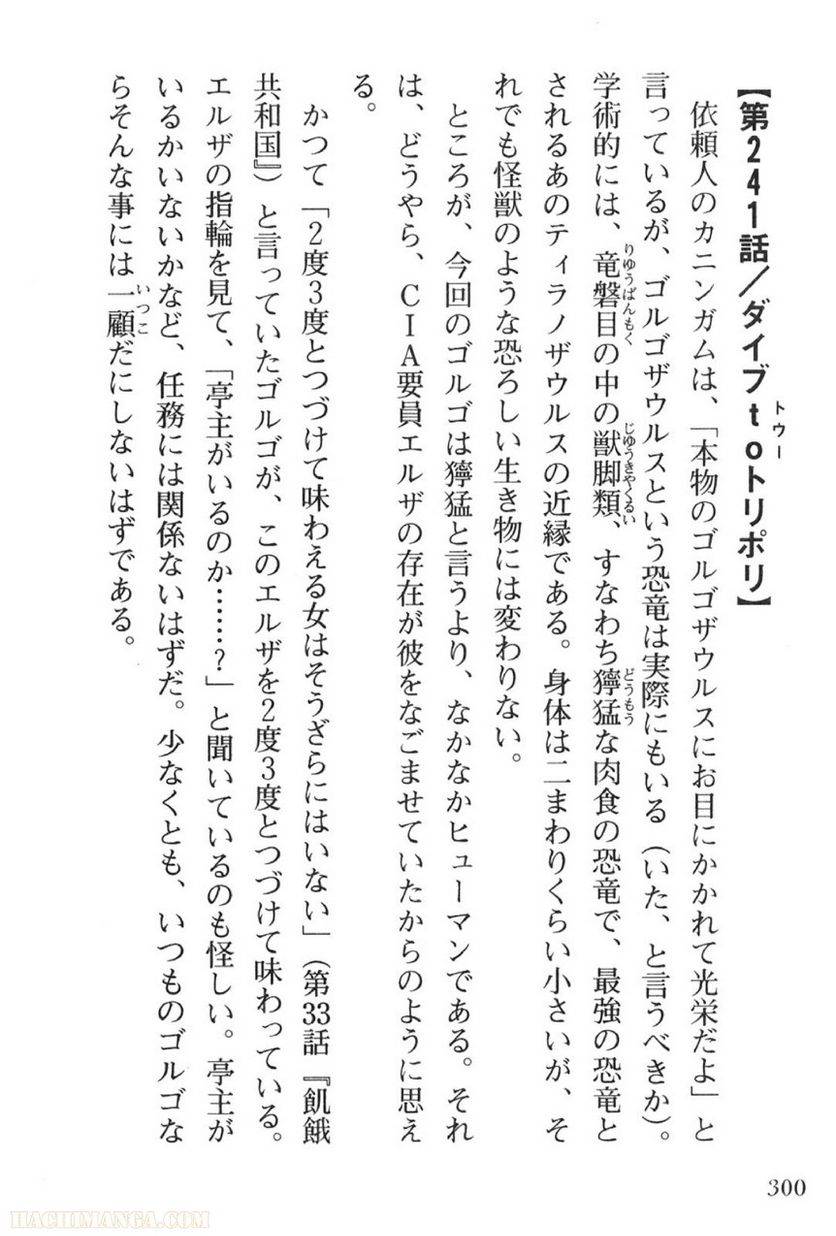 【第241話／ダイブtoトリポリ】
トゥー
依頼人のカニンガムは、「本物のゴルゴザウルスにお目にかかれて光栄だよ」と
言っているが、ゴルゴザウルスという恐竜は実際にもいる（いた、と言うべきか）。
学術的には、竜盤目の中の獣脚類、すなわち獰猛な肉食の恐竜で、最強の恐竜と
りゆうばんもく
じゆうきやくるい
どうもう
されるあのティラノザウルスの近縁である。身体は二まわりくらい小さいが、そ
れでも怪獣のような恐ろしい生き物には変わりない。
ところが、今回のゴルゴは獰猛と言うより、なかなかヒューマンである。それ
は、どうやら、CIA要員エルザの存在が彼をなごませていたからのように思え
る。
かつて「2度3度とつづけて味わえる女はそうざらにはいない」（第33話『飢餓
共和国』）と言っていたゴルゴが、このエルザを2度3度とつづけて味わっている。
エルザの指輪を見て、「亭主がいるのか……？」と聞いているのも怪しい。亭主が
いるかいないかなど、任務には関係ないはずだ。少なくとも、いつものゴルゴな
らそんな事には一顧だにしないはずである。
いつこ
300
HACHIMANGA.COM